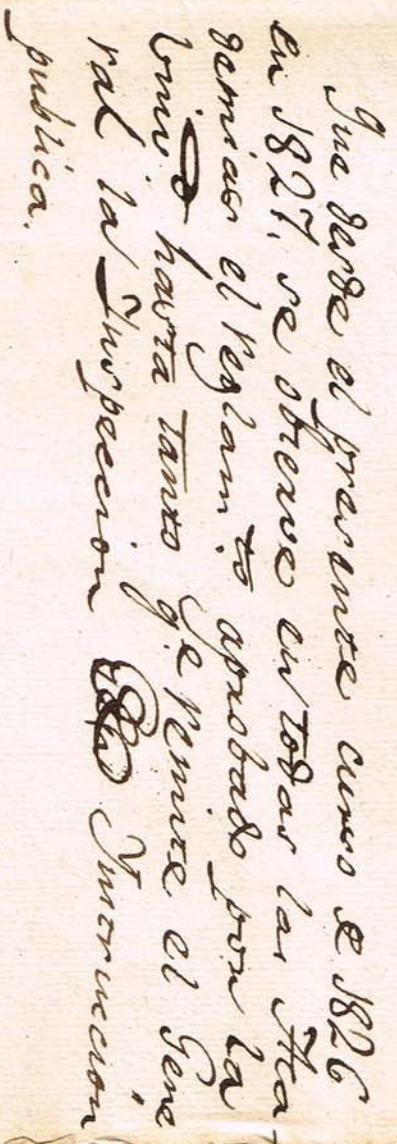 Que desde el presente curso de 1826
en 1827, se observe en todas las Aca
demias el reglam.to aprobado por la
Univ.d hasta tanto q.e remite el Gene
ral la Inspeccion de Instruccion
publica.